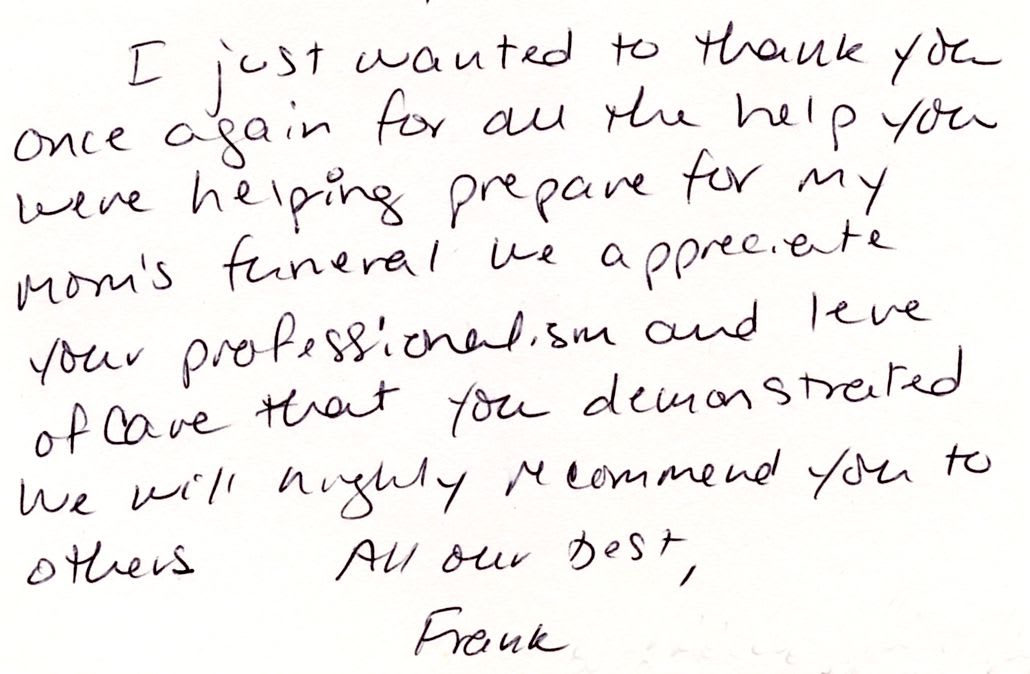 I just wanted to thank you
once again for all the help you
were helping prepare for my
mom's funeral we appreciate
your professionalism and leve
of Care that you demonstrated
We will highly recommend you to
others All our best,
Frank